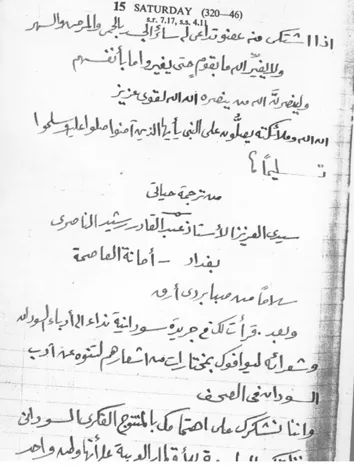 15 SATURDAY (320—46)
s.r. 7.17, s.s. 4.11
اذا اشتكى منه عضو تداعى له سائر الجسد بالحمى والسهر
ولا يغير الله ما بقوم حتى يغيروا ما بأنفسهم
ولينصرن الله من ينصره ان الله لقوي عزيز
ان الله وملائكته يصلون على النبي يأيها الذين آمنوا صلوا عليه وسلموا
تسليماً
من ترجمة حياتي
سيدي العزيز الأستاذ عبد القادر رشيد الناصري
بغداد – أمانة العاصمة
سلاماً من صبا بردى أرق
وبعد. قرأت لكم في جريدة سودانية نداء الى أدباء السودان
وشعرائه ليوافوكم بمختارات من اشعارهم للتنوه عن أدب
السودان في الصحف
واننا نشكرك على اهتمامك بالمنتوج الفكري السوداني
العربية على أنها وطن واحد